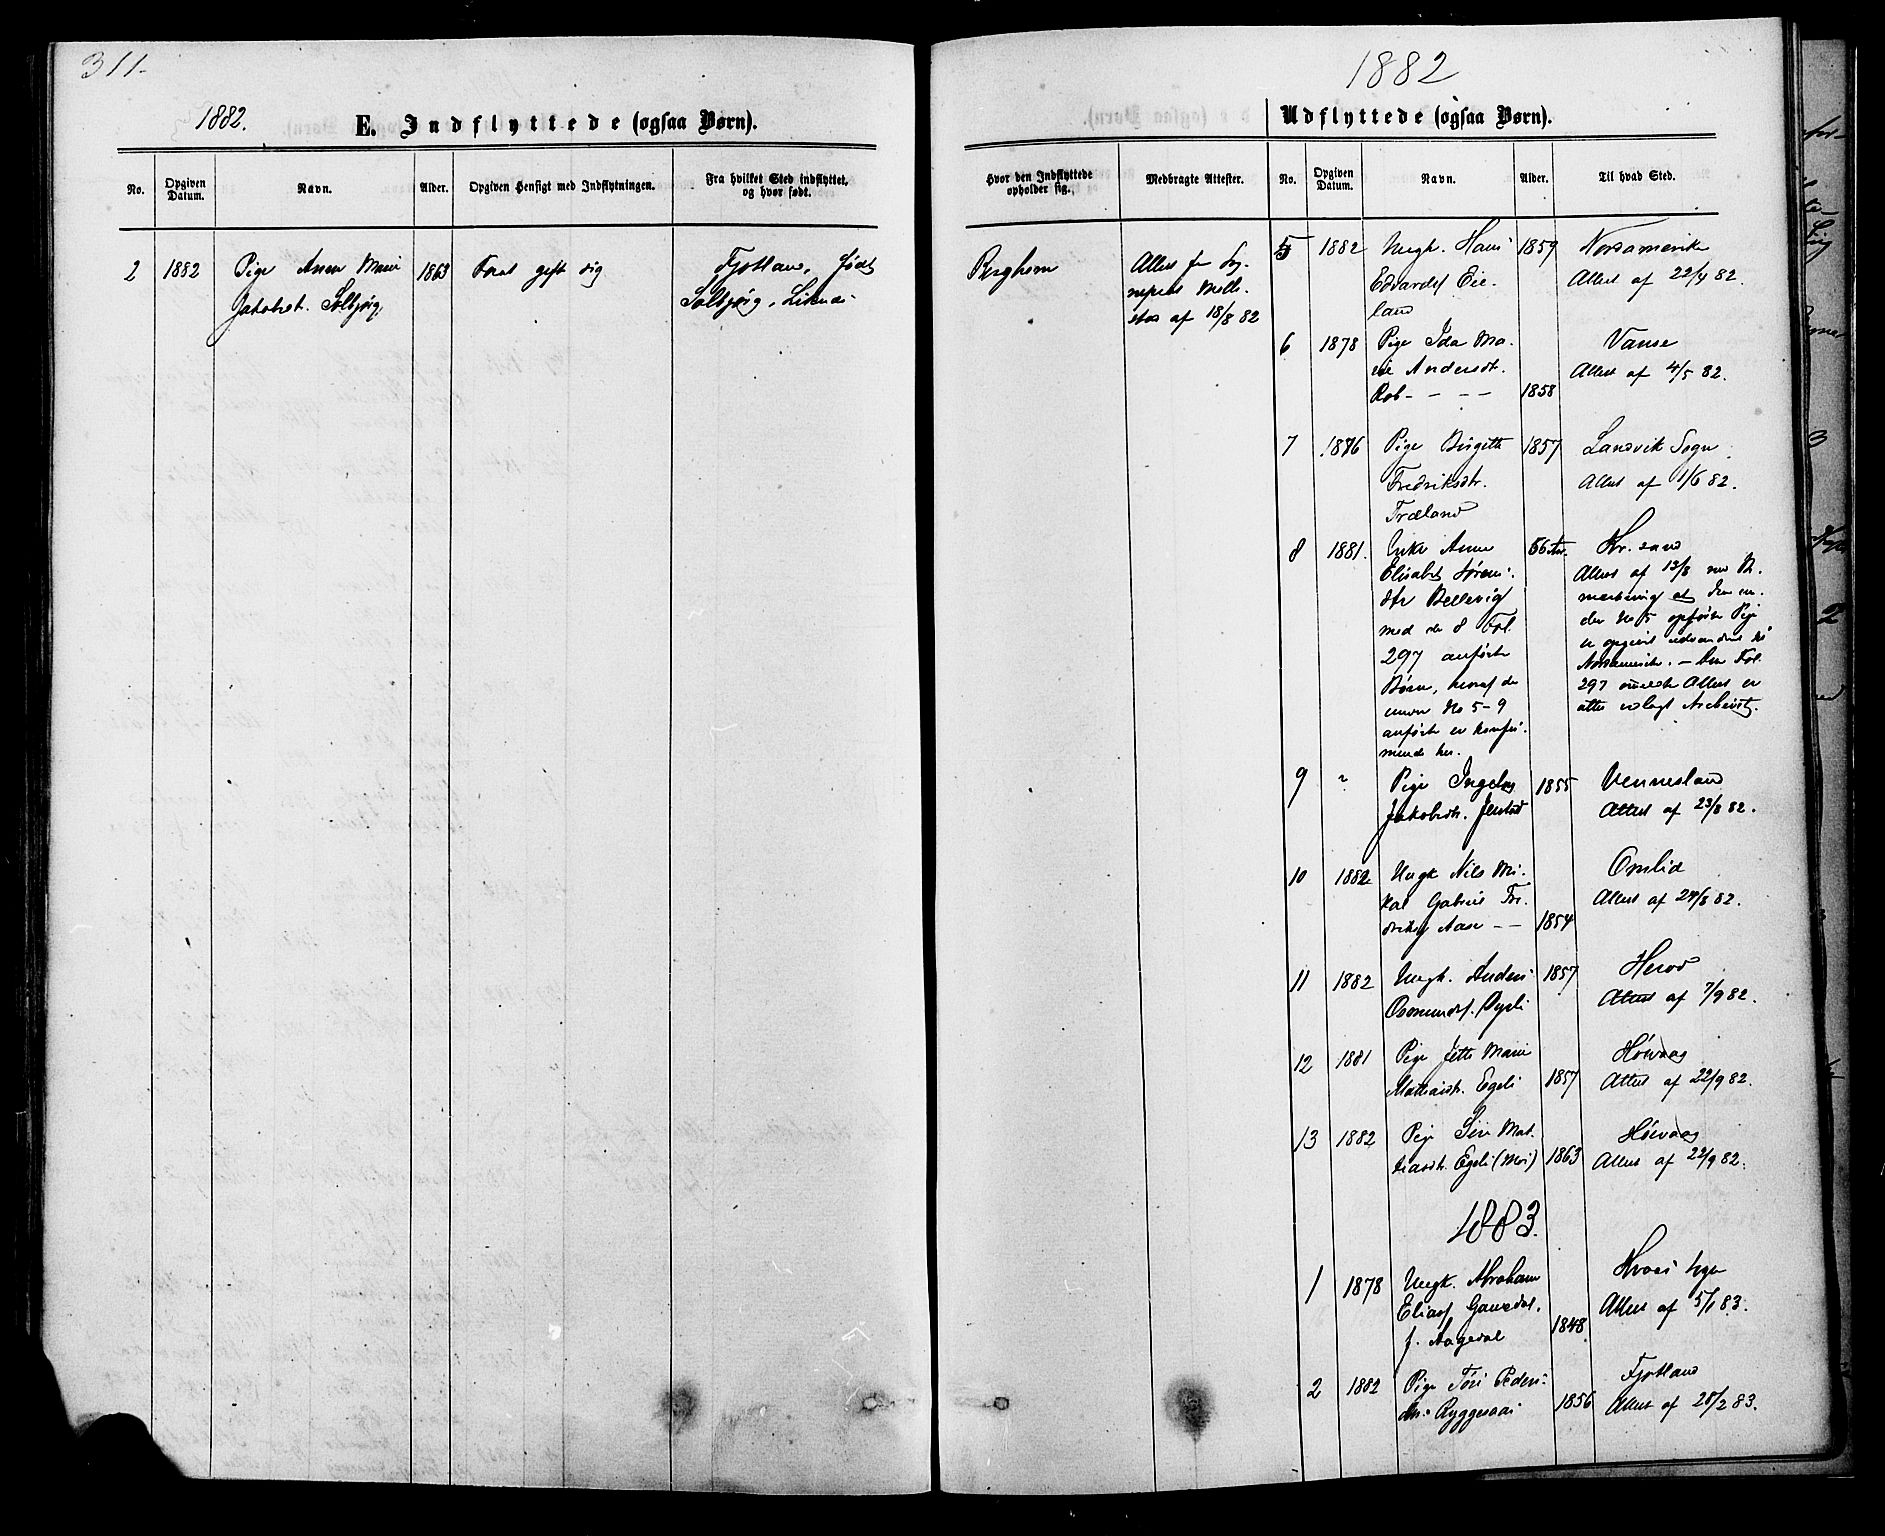 311.
1882.
E. Indflyttede (ogsaa Børn).
No.
Opgiven Datum.
Navn.
Alder.
Opgiven Hensigt med Indflytningen.
Fra hvilket Sted indflyttet, og hvor født.
2 1882 Pige Anna Marie 1863 gift sig Fjotland, født
Jakobsdt. Solbjørg, Solbjørg, Liknes
1882
Udflyttede (ogsaa Børn).
Hvor den Indflyttede opholder sig.
Medbragte Attester.
No.
Opgiven Datum.
Navn.
Alder.
Til hvad Sted.
Attest fr Sog-
nepræst
af 18/8 82
5 1882 Ungk. Hans 1859 Nordamerika
Edvards. Eie- Attest af 22/4 82.
land
6 1878 Pige Ida Ma- Vanse
rie Andersdt. Attest af 4/5 82.
Rob - - - - 1858
7 1876 Pige Birgitte 1857 Landvik Sogn
Fredriksdtr. Attest af 1/6 82.
Træland
8 1881. Enke Anne 56 Aar. Kr.sand
Elisabet Sørens- Attest af 13/8 med Be-
dtr Bellevig mærkning at den un-
med de 8 Fol. der No 5 opførte Pige
297 anførte er opgivet udvandret til
Børn, hvoraf de Nordamerika. - Den Fol.
under No 5-9 297 omeldte Attest er
anførte er konfir- atter vedlagt Archivet.
merede her.
9 " Pige Ingeborg 1855 Vennesland
Jakobsdt. Attest af 23/8 82.
10 1882 Ungk Nils Mi- Omlid
kal Gabriel Fre- Attest af 24/8 82.
driks. Aase - - 1854
11 1882 Ungk. Anders 1857 Herod
Osmunds. Attest af 7/9 82.
12 1881 Pige Jette Marie Høivaag
Mathiasdt. Egeli 1857 Attest af 22/9 82.
13 1882 Pige Siri Mat- Høivaag
hiasdt. Egeli (Moi) 1863 Attest af 22/9 82.
1883.
1 1878 Ungk. Abraham Sogn
Elias. Gausdal, Attest af 5/1 83.
f. Aagedal 1848
2 1882 Pige Tøri Peders- Fjotland
dt. Ryggesaas 1856 Attest af 28/2 83.